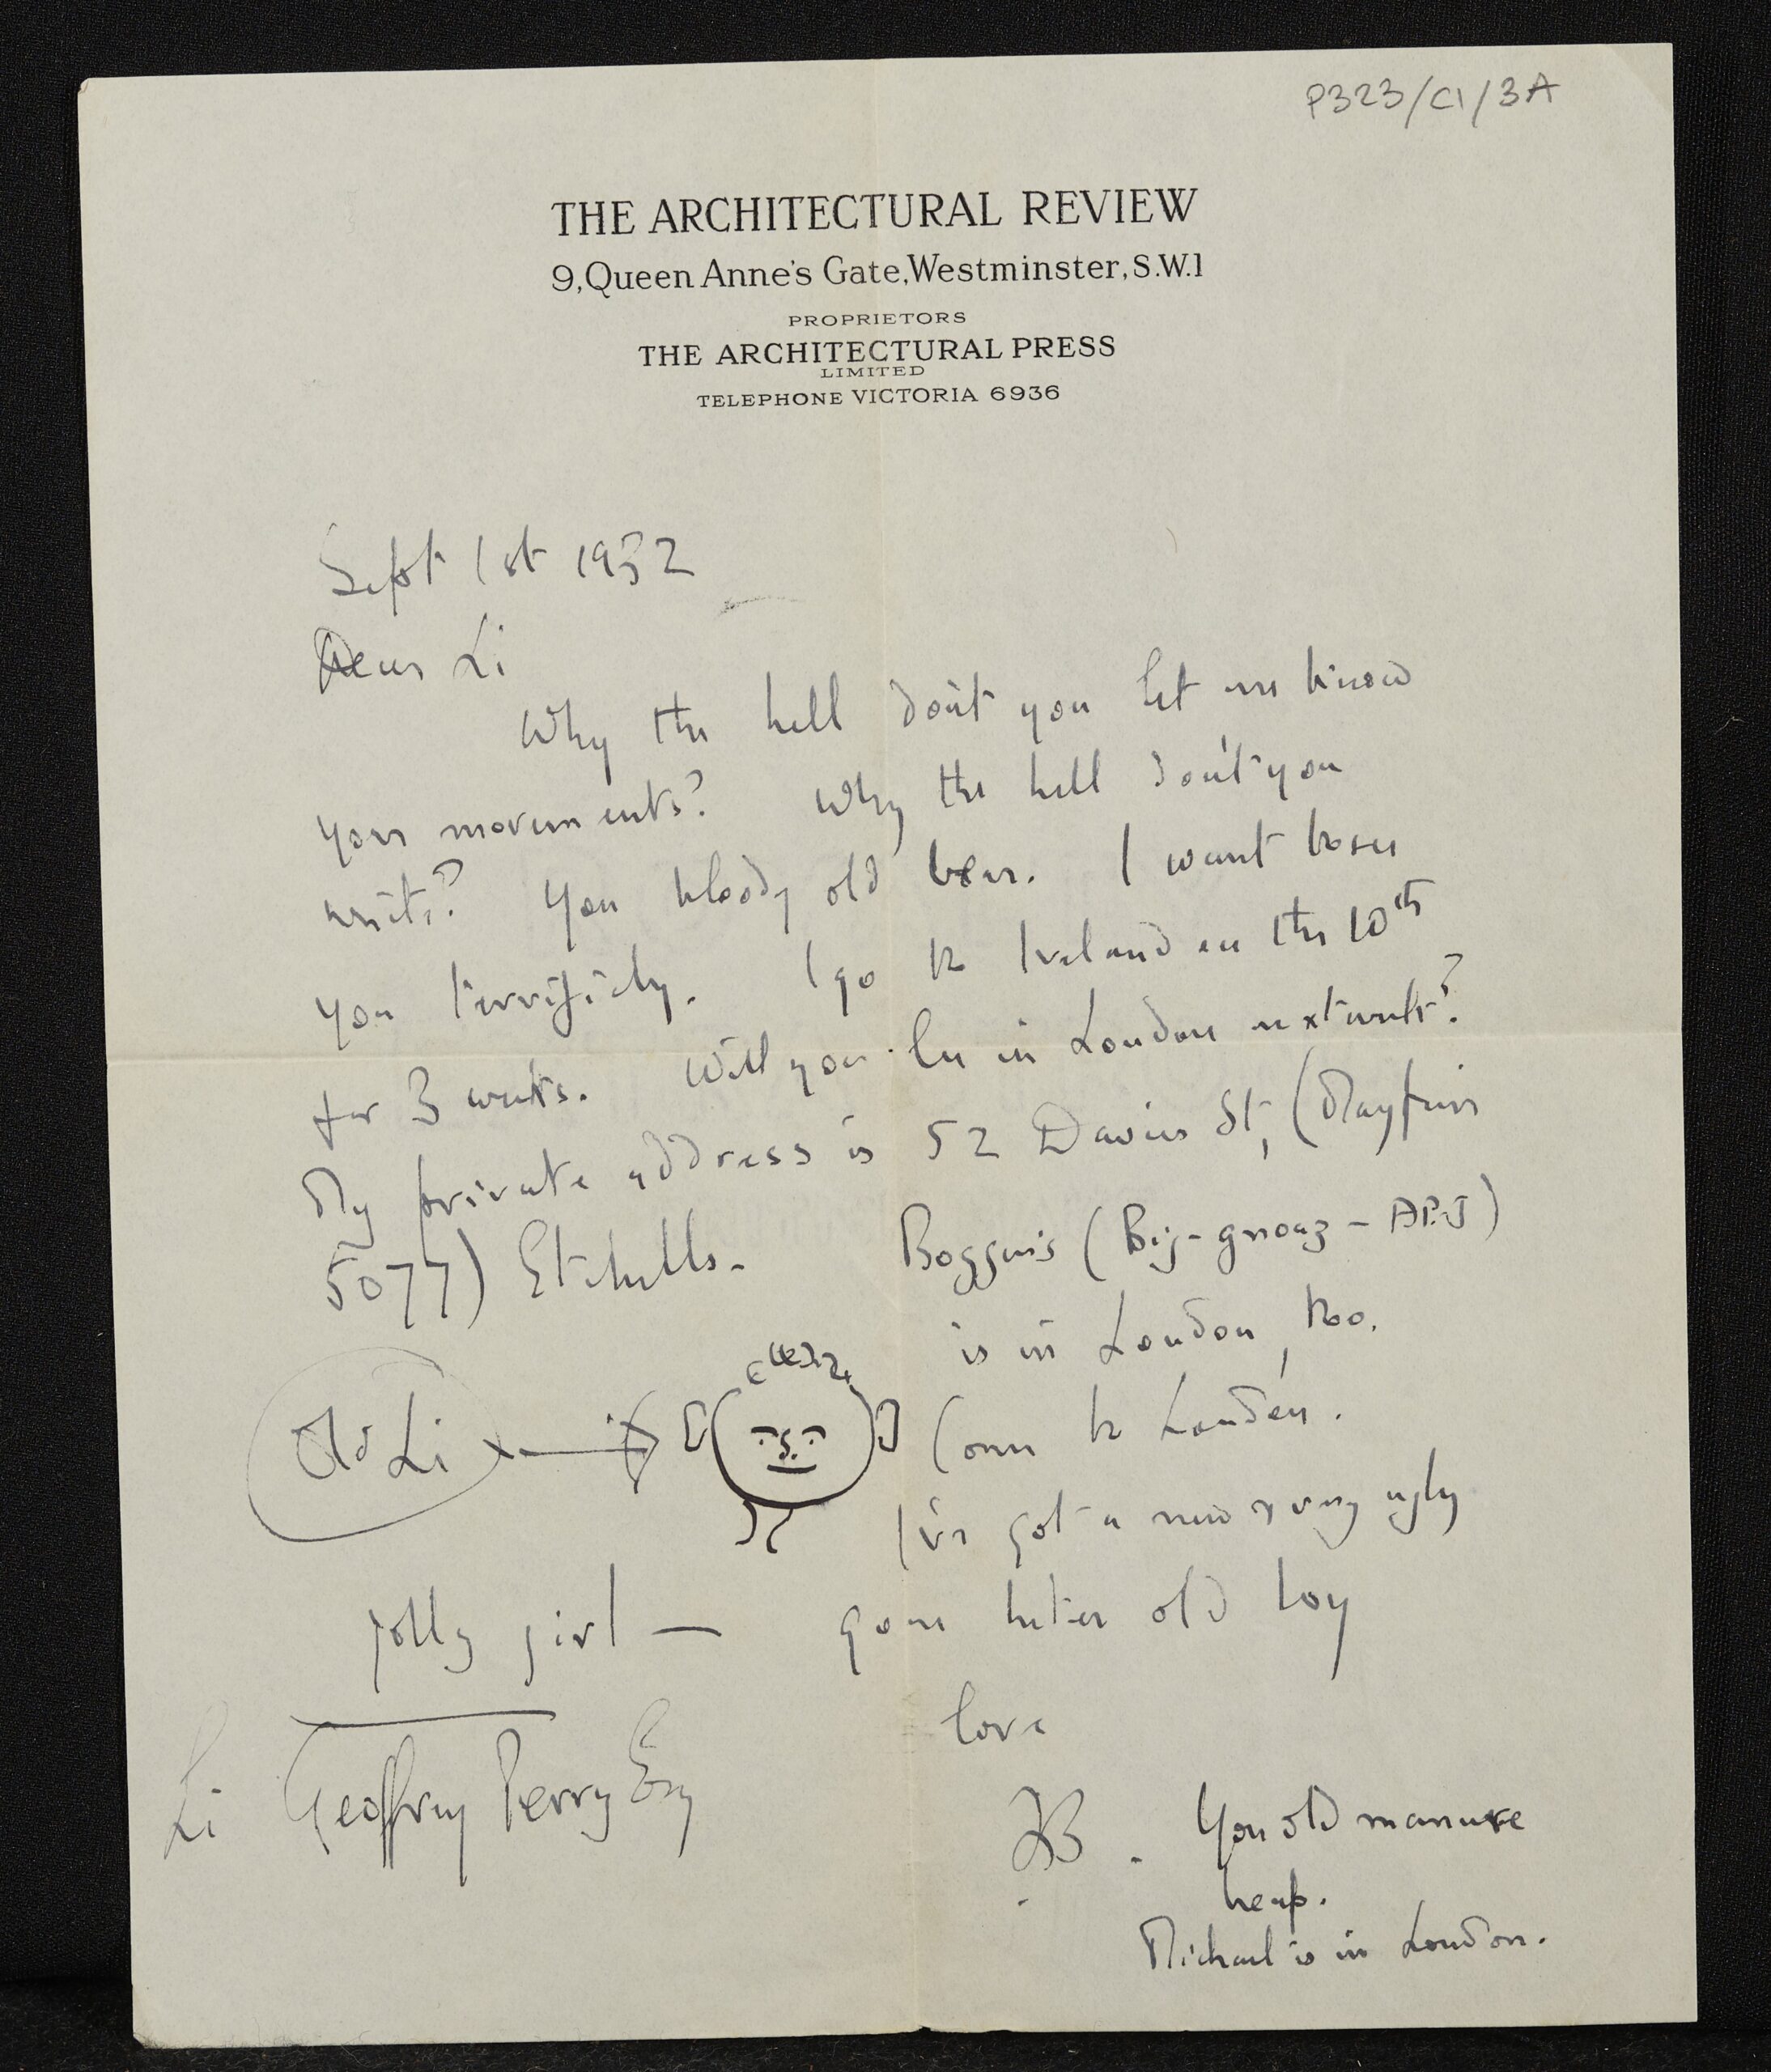 P323/C1/3A
THE ARCHITECTURAL REVIEW
9, Queen Anne's Gate, Westminster, S.W.1
PROPRIETORS
THE ARCHITECTURAL PRESS
LIMITED
TELEPHONE VICTORIA 6936
Sept 1st 1932
Dear Li
Why the hell don't you let me know
your movements? Why the hell don't you
write? You bloody old bear. I want to see
you terrificly. I go to Ireland on the 10th
for 3 weeks. Will you be in London next week?
My private address is 52 Davies St, (Mayfair
5077) Etchells.
Boggins (Big-gnoaz - APJ)
is in London, too.
Old Li
Come to London.
I've got a new & very ugly
jolly girl — your
old boy
love
JB. You old manure
heap.
Michael is in London.
Li Geoffrey Perry Esq